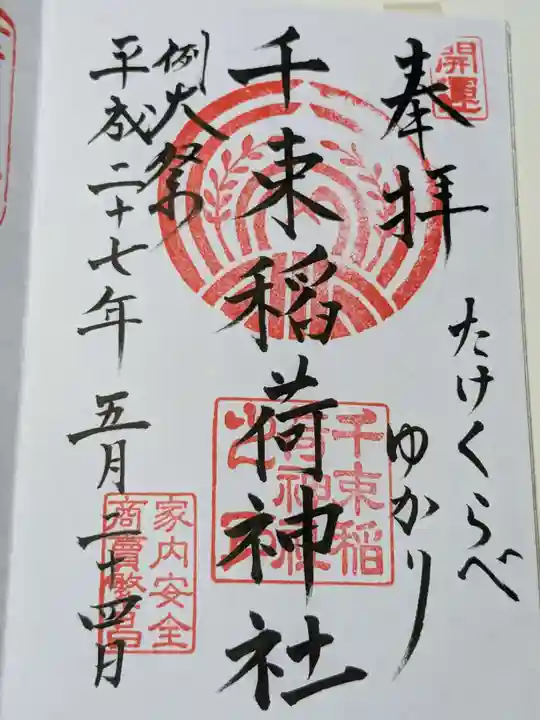 開運
奉拝
たけくらべ
ゆかり
千束稲荷神社
千束稲
荷神社
例大祭
平成二十七年 五月 二十四日
家内安全
商賣繁昌